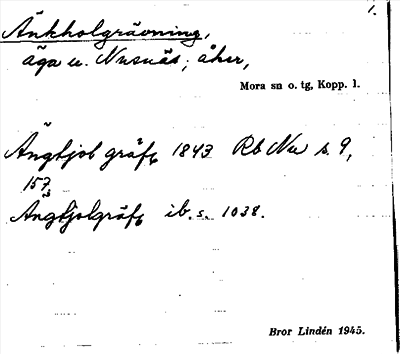 1.
Änkholgrävning,
äga u. Nusnäs; åker,
Mora sn o. tg, Kopp. l.
Ängkjol gräft 1843 Rb Nu s. 9,
157,
Ängkjolgräft ib. s. 1038.
Bror Lindén 1945.